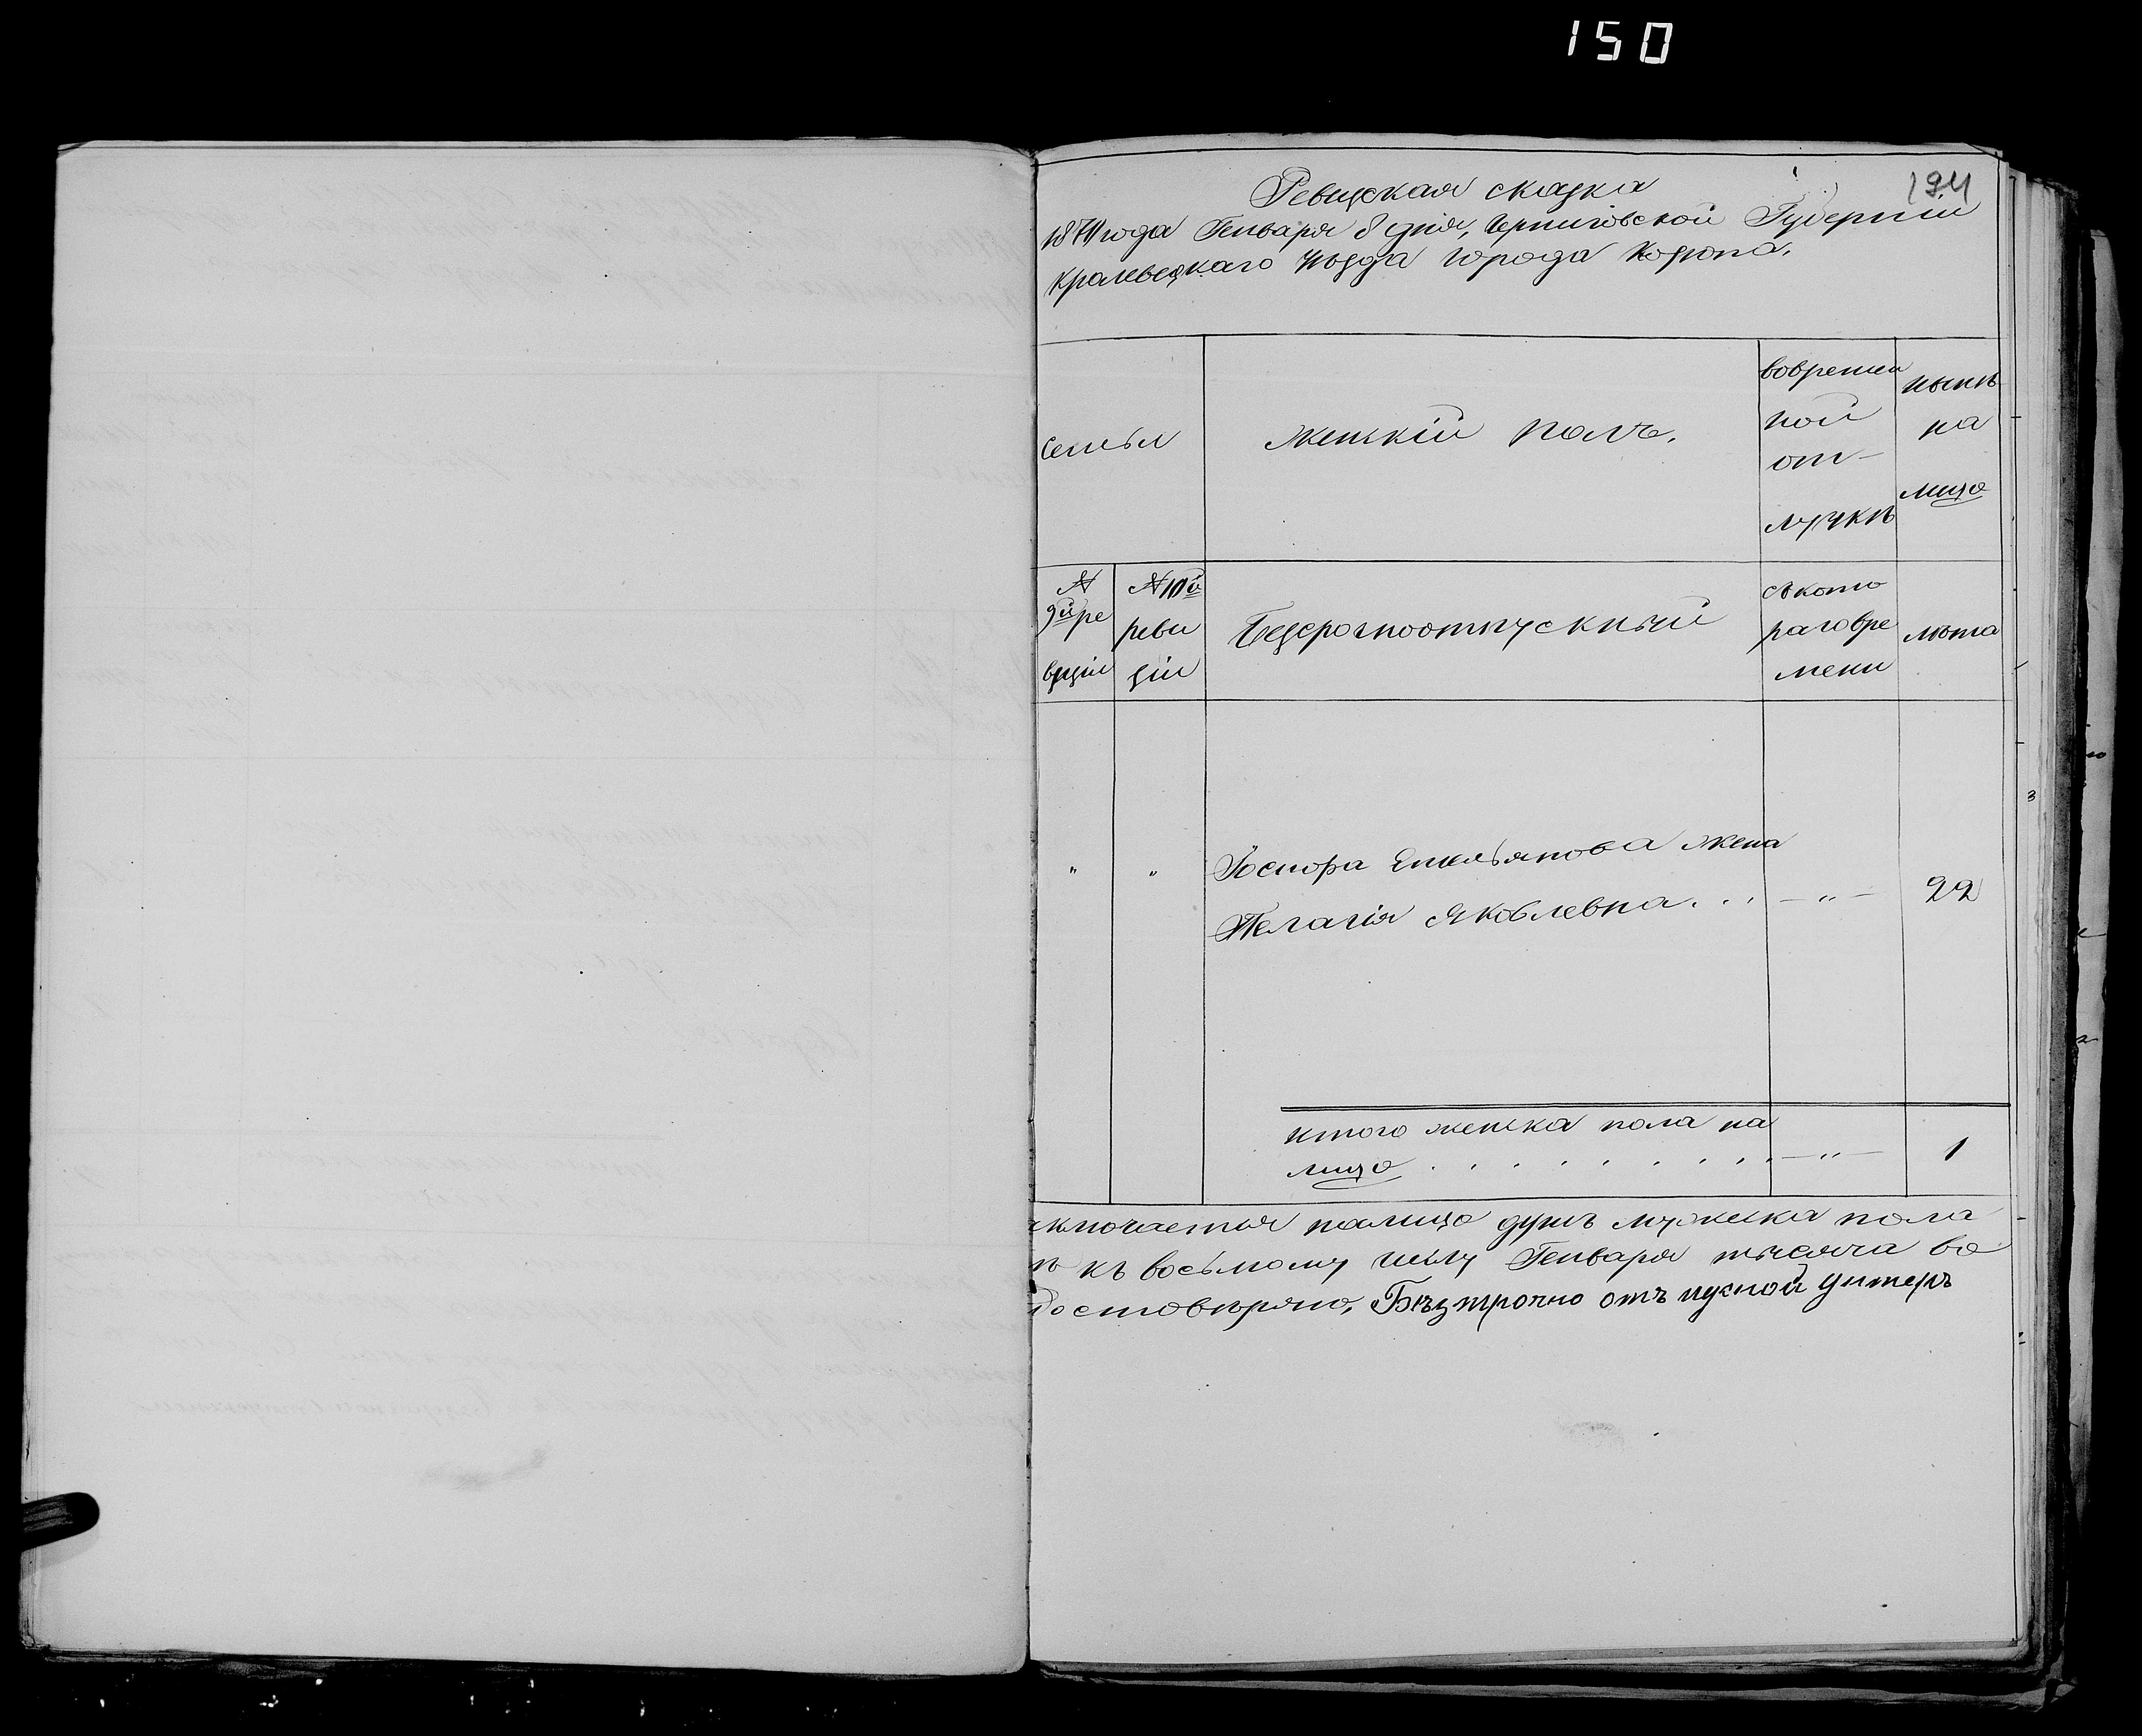 150
194
Ревизская сказка
1870 года Генваря 8 дня, Черниговской Губернии
Кролевецкаго уѣзда города Коропа.
семьи
Женскій полъ.
во времен
ной
от-
лучкѣ
нынѣ
на
лицо
№
9й ре
визіи
№ 10й
реви
зіи
Безсрочноотпускный
съ кото
раго вре
мени
лѣта
" " Госпора Емельянова жена
Пелагія Яковлевна . . . — " — 22
итого женска пола на
лицо . . . . . . . . . — " — 1
аключается налицо душъ мужеска пола
ѣ къ восьмому числу Генваря тысяча во
достовѣряю, Бѣзтрочно отъ пускной унтеръ